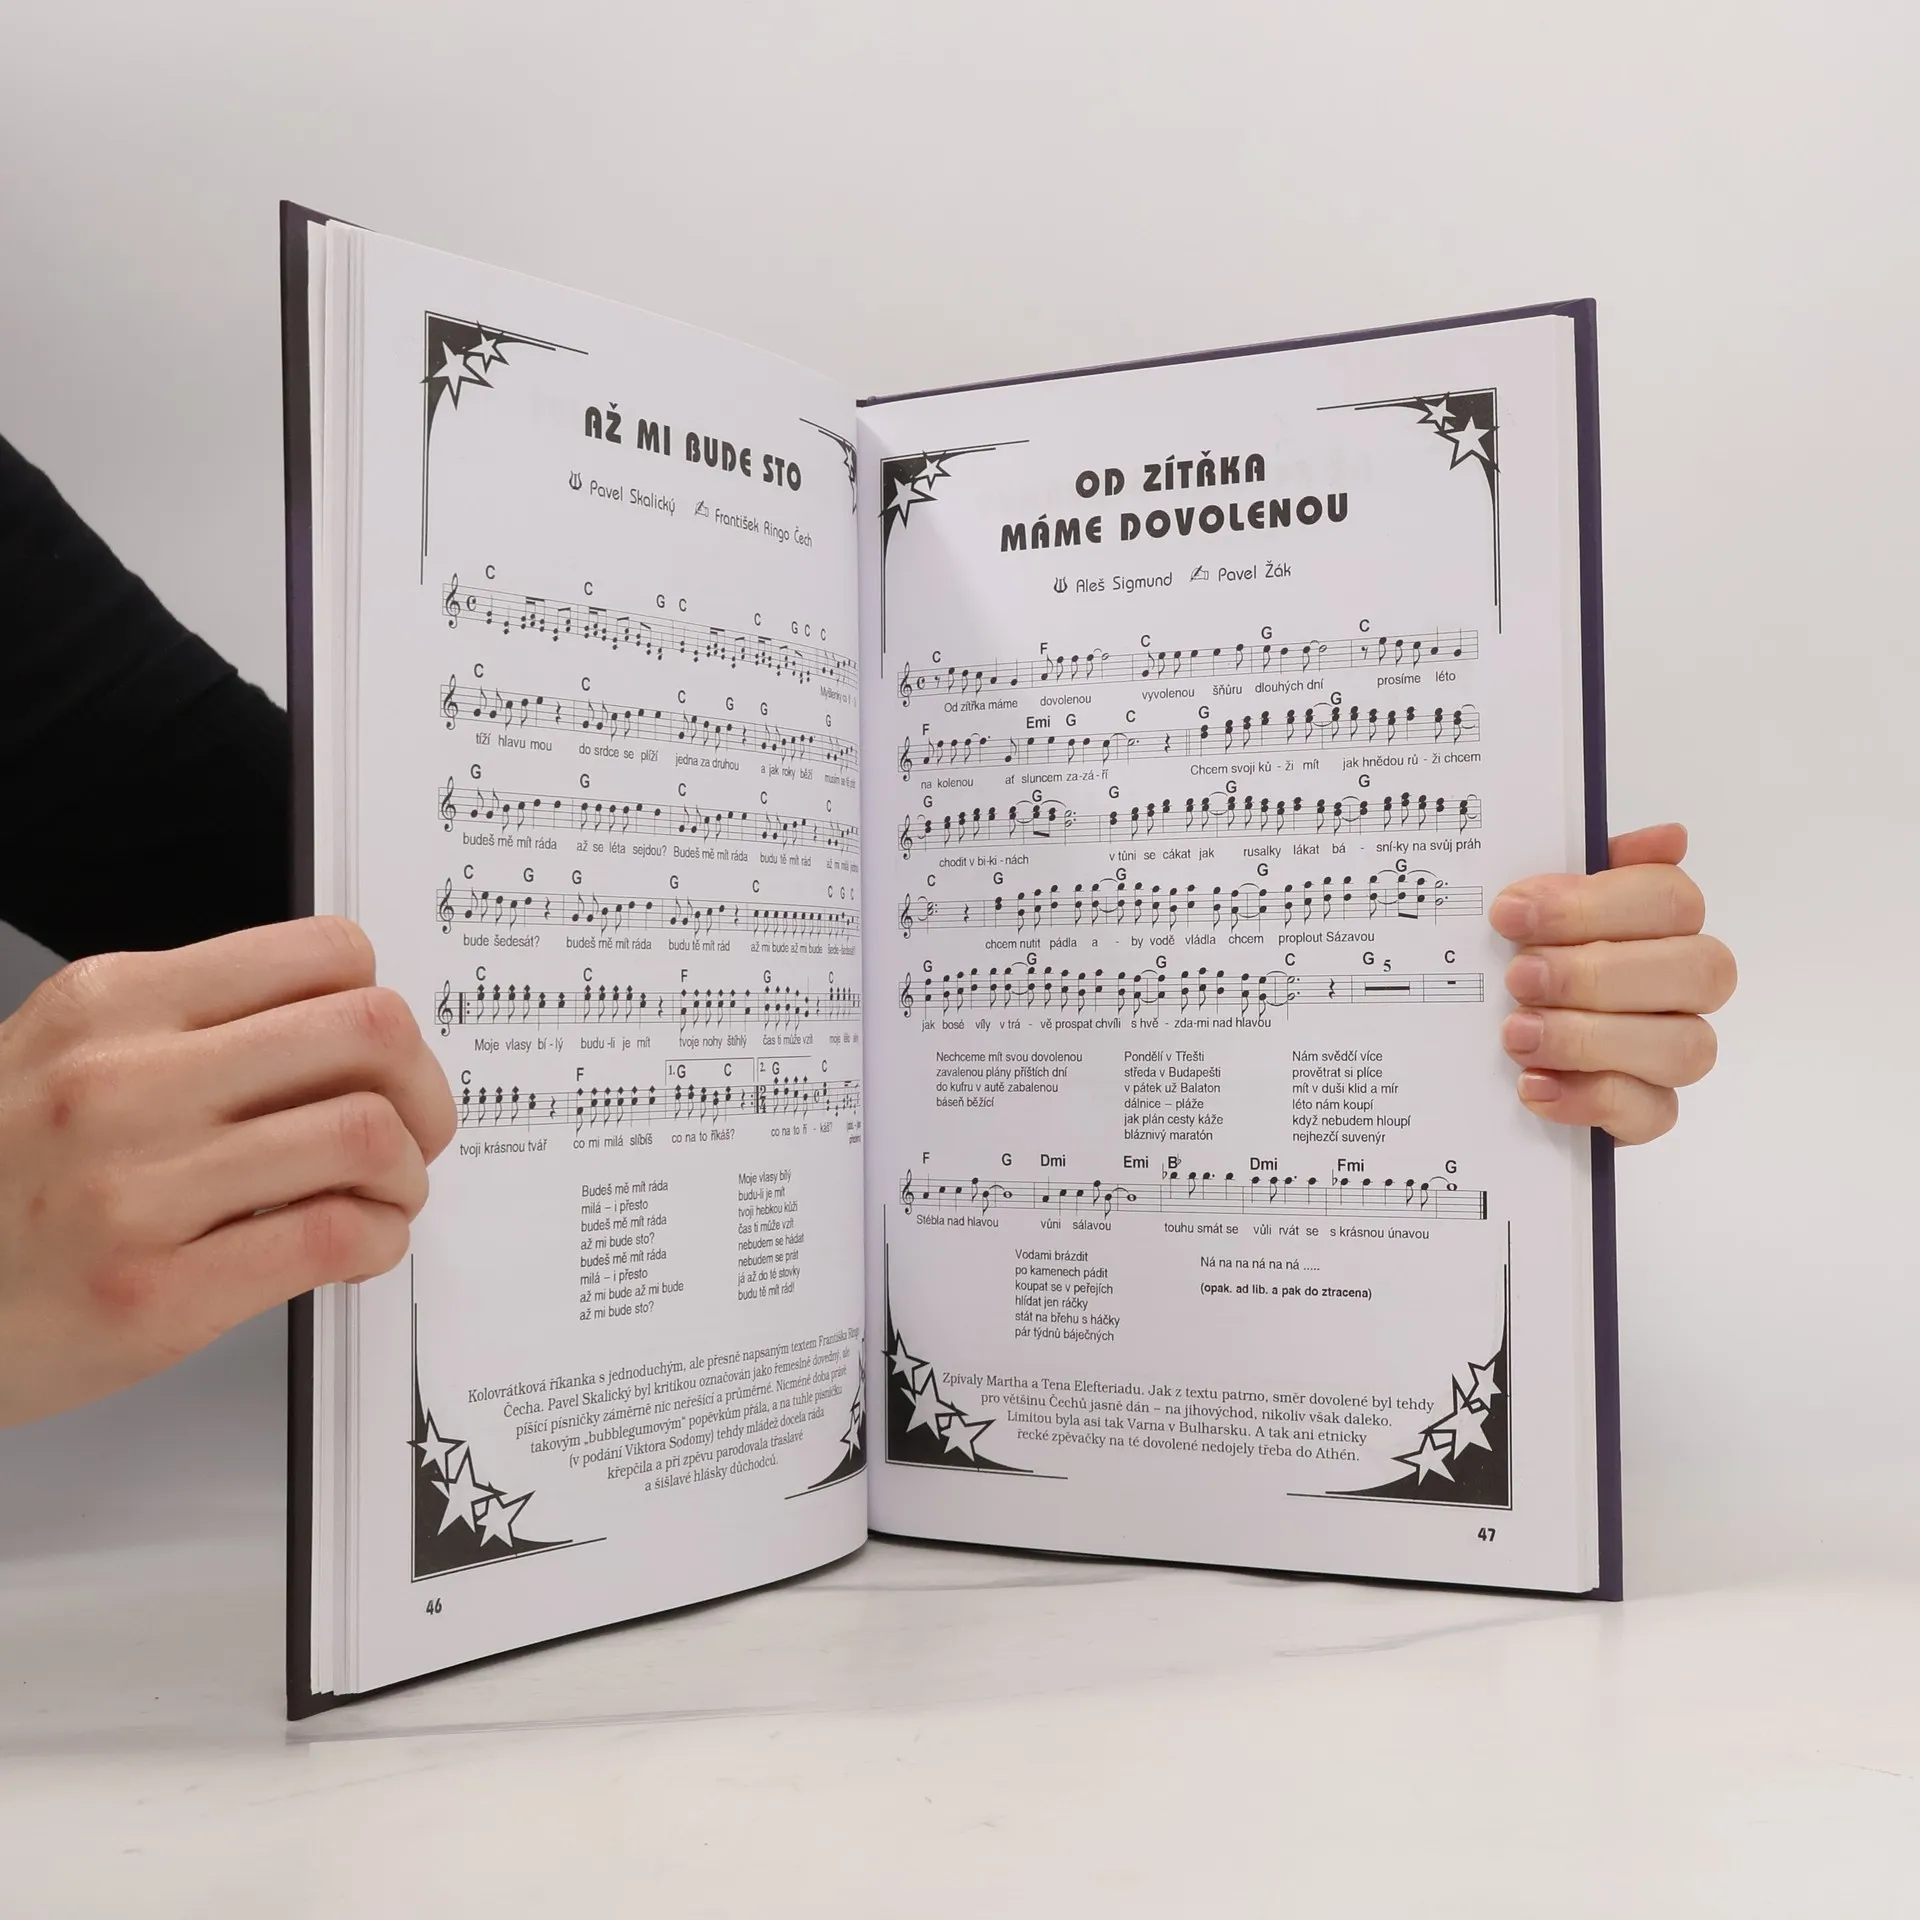 AŽ MI BUDE STO
Pavel Skalický František Ringo Čech
C C G C C G C C
C
Myšlenky co ti
C C C G G G
tíží hlavu mou do srdce se plíží jedna za druhou a jak roky běží musím se tě ptát
G G C C C
budeš mě mít ráda až se léta sejdou? Budeš mě mít ráda budu tě mít rád až mi milá
C G G G C C G C
bude šedesát? budeš mě mít ráda budu tě mít rád až mi bude až mi bude šede-šedesát?
C C F G C
Moje vlasy bí - lý budu - li je mít tvoje nohy štíhlý čas ti může vzít moje tělo
C F 1. G C 2. G C
tvoji krásnou tvář co mi milá slíbíš co na to říkáš? co na to ří - káš?
Budeš mě mít ráda
milá – i přesto
budeš mě mít ráda
až mi bude sto?
budeš mě mít ráda
milá – i přesto
až mi bude až mi bude
až mi bude sto?
Moje vlasy bílý
budu-li je mít
tvoji hebkou kůži
čas ti může vzít
nebudem se hádat
nebudem se prát
já až do té stovky
budu tě mít rád!
Kolovrátková říkanka s jednoduchým, ale přesně napsaným textem Františka Ringo
Čecha. Pavel Skalický byl kritikou označován jako řemeslně dovedný, ale
píšící písničky záměrně nic neřešící a průměrné. Nicméně doba právě
takovým „bubblegumovým“ popěvkům přála, a na tuhle písničku
(v podání Viktora Sodomy) tehdy mládež docela ráda
křepčila a při zpěvu parodovala třaslavé
a šišlavé hlásky důchodců.
46
OD ZÍTŘKA
MÁME DOVOLENOU
Aleš Sigmund Pavel Žák
C F C G C
Od zítřka máme dovolenou vyvolenou šňůru dlouhých dní prosíme léto
F Emi G C G G
na kolenou ať sluncem za-zá-ří Chcem svoji ků - ži mít jak hnědou rů - ži chcem
G G G G G
chodit v bi-ki-nách v tůni se cákat jak rusalky lákat bá - sní-ky na svůj práh
C G G G G
chcem nutit pádla a - by vodě vládla chcem proplout Sázavou
G G G C G 5 C
jak bosé víly v trá - vě prospat chvíli s hvě - zda-mi nad hlavou
Nechceme mít svou dovolenou
zavalenou plány příštích dní
do kufru v autě zabalenou
báseň běžící
Pondělí v Třešti
středa v Budapešti
v pátek už Balaton
dálnice – pláže
jak plán cesty káže
bláznivý maratón
Nám svědčí více
provětrat si plíce
mít v duši klid a mír
léto nám koupí
když nebudem hloupí
nejhezčí suvenýr
F G Dmi Emi B♭ Dmi Fmi G
Stébla nad hlavou vůni sálavou touhu smát se vůli rvát se s krásnou únavou
Vodami brázdit
po kamenech pádit
koupat se v peřejích
hlídat jen ráčky
stát na břehu s háčky
pár týdnů báječných
Ná na na ná na ná .....
(opak. ad lib. a pak do ztracena)
Zpívaly Martha a Tena Elefteriadu. Jak z textu patrno, směr dovolené byl tehdy
pro většinu Čechů jasně dán – na jihovýchod, nikoliv však daleko.
Limitou byla asi tak Varna v Bulharsku. A tak ani etnicky
řecké zpěvačky na té dovolené nedojely třeba do Athén.
47